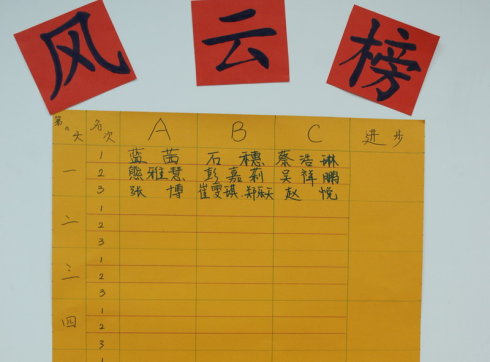 风云榜
第几天 名次 A B C 进步
一 1 蓝茜 石穗 蔡浩琳
2 熊雅慧 彭嘉莉 吴祥鹏
3 张博 崔雯琪 郑 赵悦
二 1
2
3
三 1
2
3
四 1
2
3
1